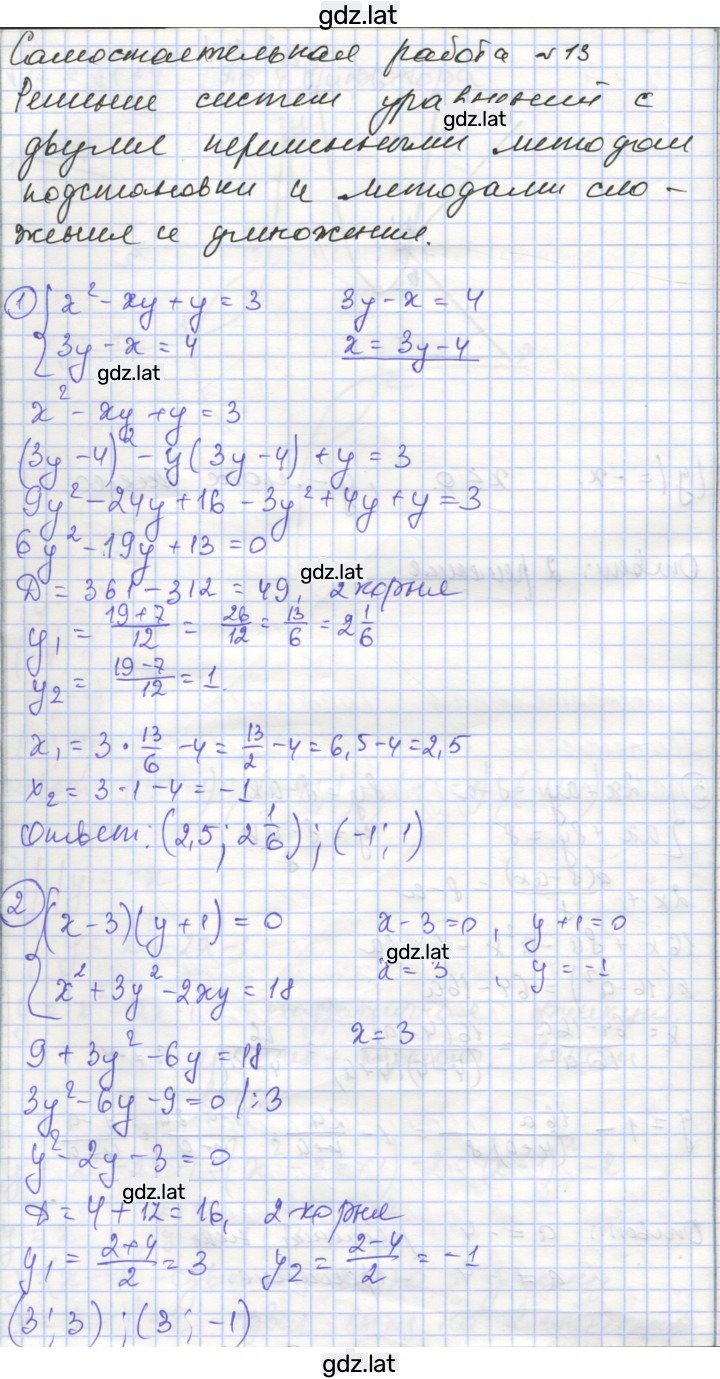 gdz.lat
Самостоятельная работа №13
Решение систем уравнений с
gdz.lat
двумя переменными методом
подстановки и методами сло-
жения и умножения.
1 { x² - xy + y = 3    3y - x = 4
{ 3y - x = 4    x = 3y - 4
gdz.lat
x² - xy + y = 3
(3y - 4)² - y(3y - 4) + y = 3
9y² - 24y + 16 - 3y² + 4y + y = 3
6y² - 19y + 13 = 0
gdz.lat
D = 361 - 312 = 49, 2 корня
y₁ = (19+7)/12 = 26/12 = 13/6 = 2 1/6
y₂ = (19-7)/12 = 1
x₁ = 3 · 13/6 - 4 = 13/2 - 4 = 6,5 - 4 = 2,5
x₂ = 3 · 1 - 4 = -1
Ответ: (2,5; 2 1/6); (-1; 1)
2 { (x - 3)(y + 1) = 0    x - 3 = 0, y + 1 = 0
gdz.lat
{ x² + 3y² - 2xy = 18    x = 3, y = -1
9 + 3y² - 6y = 18    x = 3
3y² - 6y - 9 = 0 /:3
y² - 2y - 3 = 0
gdz.lat
D = 4 + 12 = 16, 2 корня
y₁ = (2+4)/2 = 3    y₂ = (2-4)/2 = -1
(3; 3); (3; -1)
gdz.lat